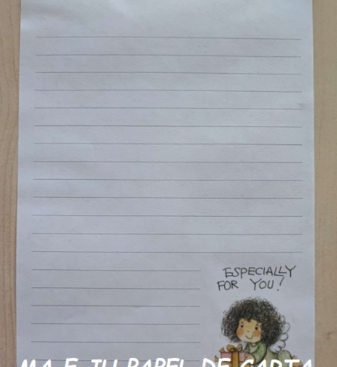 ESPECIALLY
FOR YOU!
MA E JU PAPEL DE CARTA